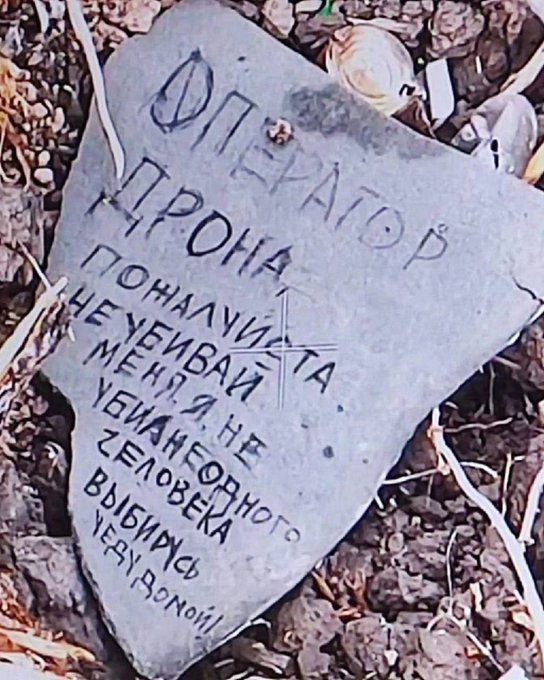 ОПЕРАТОР
ДРОНА,
ПОЖАЛУЙСТА
НЕ УБИВАЙ
МЕНЯ. Я НЕ
УБИЛ НЕ ОДНОГО
ЧЕЛОВЕКА
ВЫБИРУСЬ
УЕДУ ДОМОЙ!